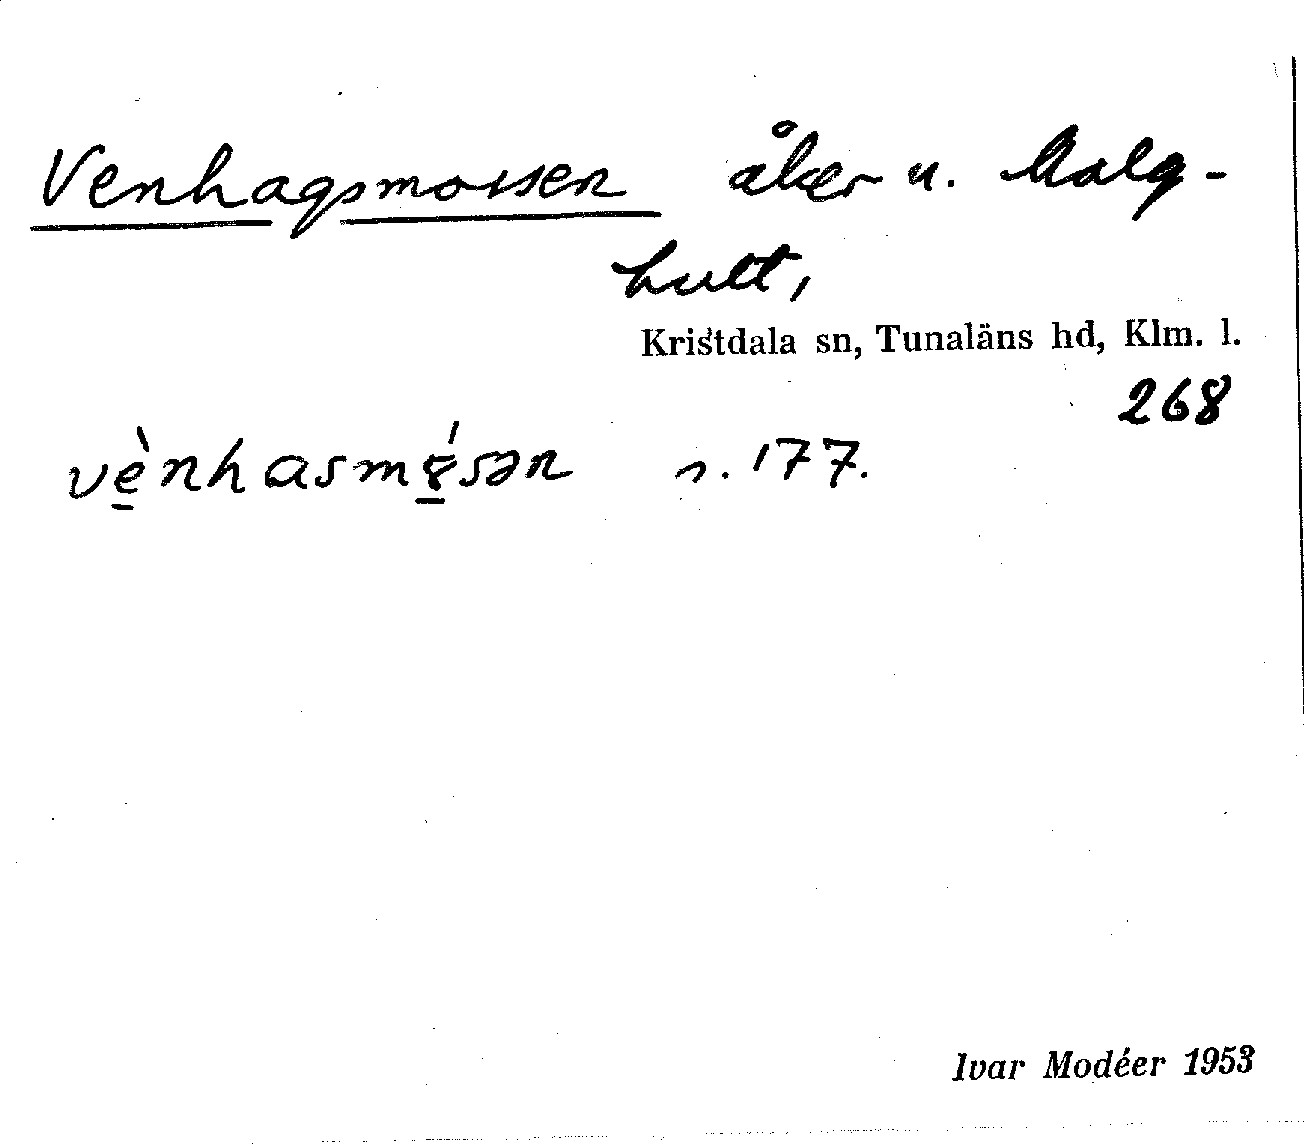 Venhagsmossen åker u. Malg-
hult,
Kristdala sn, Tunaläns hd, Klm. l.
268
vènhasmɤ́sən s. 177.
Ivar Modéer 1953